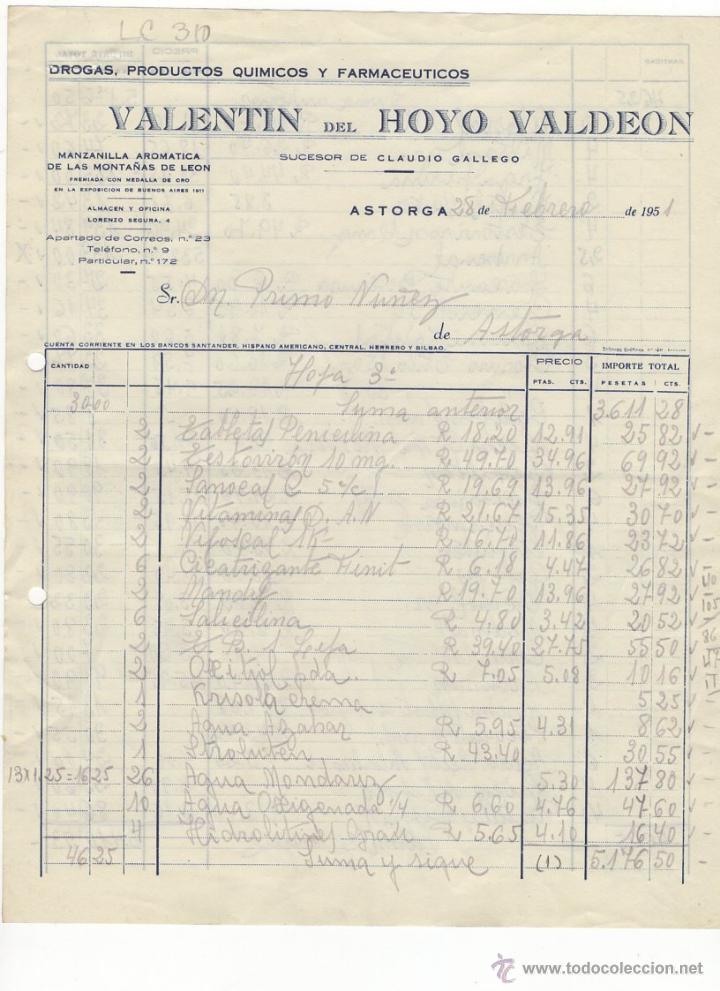 LC 310
DROGAS, PRODUCTOS QUIMICOS Y FARMACEUTICOS
VALENTIN DEL HOYO VALDEON
MANZANILLA AROMATICA
DE LAS MONTAÑAS DE LEON
PREMIADA CON MEDALLA DE ORO
EN LA EXPOSICION DE BUENOS AIRES 1911
ALMACEN Y OFICINA
LORENZO SEGURA, 4
Apartado de Correos, n.º 23
Teléfono, n.º 9
Particular, n.º 172
SUCESOR DE CLAUDIO GALLEGO
ASTORGA 28 de Febrero de 1951
Sr. Dn Primo Nuñez
de Astorga
CUENTA CORRIENTE EN LOS BANCOS SANTANDER, HISPANO AMERICANO, CENTRAL, HERRERO Y BILBAO.
CANTIDAD PRECIO IMPORTE TOTAL
PTAS. CTS. PESETAS CTS.
Hoja 3ª
30 00 Suma anterior 3.611 28
2 Tableta Penicilina R 18.20 12.91 25 82
2 Testovirón 10 mg. R 49.70 34.96 69 92
2 Sanocal C 5 c/c R 19.69 13.96 27 92
2 Vitamina D. A.N R 21.67 15.35 30 70
2 R 16.70 11.86 23 72
6 Cicatrizante R 6.18 4.47 26 82
2 R 19.70 13.96 27 92
6 Salicilina R 4.80 3.42 20 52
2 R 39.40 27.75 55 50
2 pda. R 7.05 5.08 10 16
1 crema 5 25
2 Agua Azahar R 5.95 4.31 8 62
1 R 43.40 30 55
13 x 1,25 = 16 25 26 Agua Mondariz 5.30 137 80
10 Agua Oxigenada 1/4 R 6.60 4.76 47 60
4 R 5.65 4.10 16 40
46 25 Suma y sigue (1) 5.176 50
www.todocoleccion.net